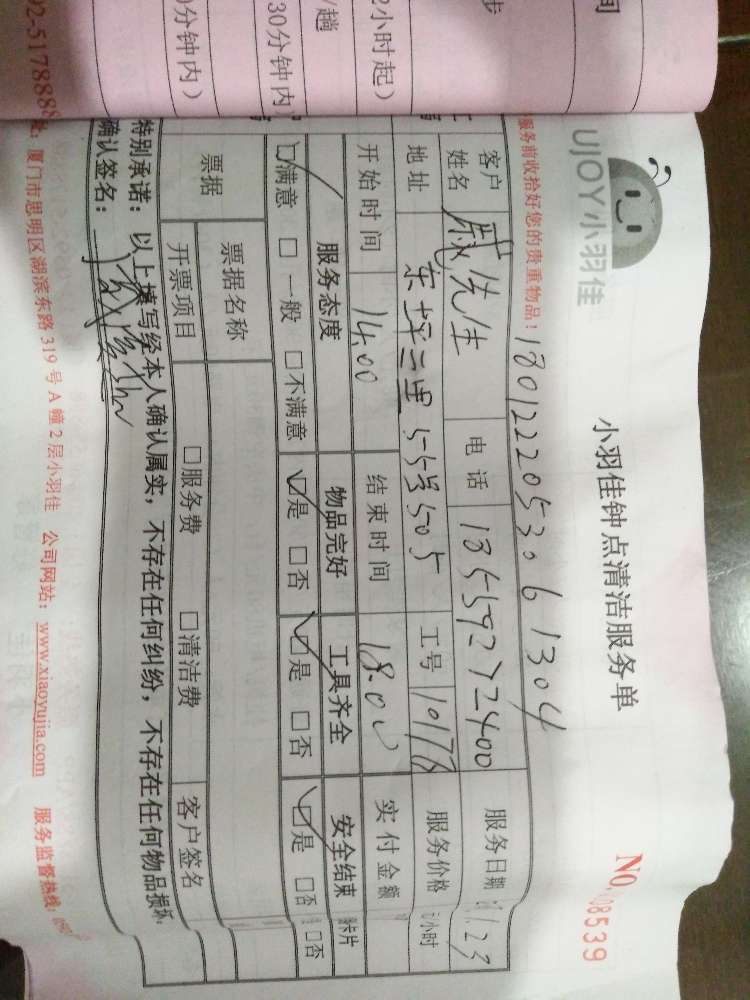 间
步
2小时起）
/趟
30分钟内
0分钟内）
92-5178888
UJOY小羽佳
小羽佳钟点清洁服务单
NO. 08539
服务前收拾好您的贵重物品！
180122205306 1304
客户姓名 戚先生 电话 18559272400 服务日期 1.23
地址 东坪二里55号505 工号 服务价格 小时
开始时间 14.00 结束时间 18.00 实付金额
服务态度 物品完好 工具齐全 安全结束 卡片
☑满意 □一般 □不满意 ☑是 □否 ☑是 □否 ☑是 □否 □否
票据 票据名称
开票项目 □服务费 □清洁费 客户签名
特别承诺：以上填写经本人确认属实，不存在任何纠纷，不存在任何物品损坏
确认签名：
厦门市思明区湖滨东路319号A幢2层小羽佳 公司网站：www.xiaoyujia.com 服务监督热线：